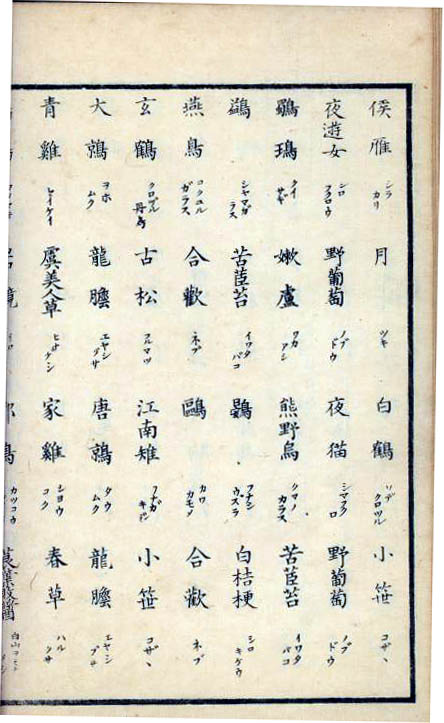 侯雁 シラカリ 月 ツキ 白鶴 ソデクロヅル 小笹 コザヽ
夜遊女 シロフクロウ 野葡萄 ノブドウ 夜猫 シマフクロ 野葡萄 ノブドウ
鷊鳿 クイサギ 嫰蘆 ワカアシ 熊野烏 クマノカラス 苦苣苔 イワタバコ
鷁 シヤマガラス 苦苣苔 イワタバコ 鷃 フナシウズラ 白桔梗 シロキケウ
燕烏 コクマルガラス 合歡 ネブ 鷗 カワカモメ 合歡 ネブ
玄鶴 クロヅル 古松 フルマツ 江南雉 小笹 コザヽ
大鶉 ヲホムク 龍膽 エヤシグサ 唐鶉 タウムク 龍膽 エヤシ
青雞 セイケイ 虞美人草 ヒナゲシ 家雞 シヨウコク 春草 ハルクサ
カツコウ